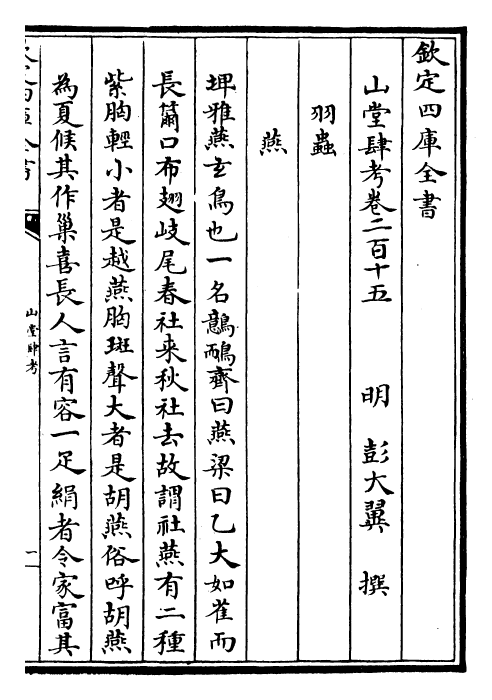 欽定四庫全書
山堂肆考卷二百十五
明 彭大翼 撰
羽蟲
燕
埤雅燕玄鳥也一名鷾鴯齊曰燕梁曰乙大如雀而
長籋口布翅岐尾春社来秋社去故謂社燕有二種
紫胸輕小者是越燕胸斑聲大者是胡燕俗呼胡燕
為夏候其作巢喜長人言有容一疋絹者令家富其
山堂肆考
一